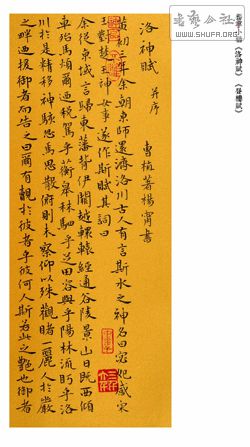 洛神賦 并序
曹植著楊霄書
黃初三年余朝京師還濟洛川古人有言斯水之神名曰宓妃感宋
玉對楚王神女事遂作斯賦其詞曰
余從京域言歸東藩背伊闕越轘轅經通谷陵景山日既西傾
車殆馬煩爾迺稅駕乎蘅皋秣駟乎芝田容與乎陽林流眄乎洛
川於是精移神駭忽焉思散俯則未察仰以殊觀睹一麗人於巖
之畔迺援御者而告之曰爾有覿於彼者乎彼何人斯若此之艷也御者
WWW.SHUFA.ORG
《洛神賦》